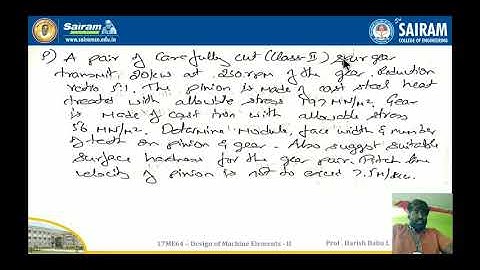 Sairam
www.sairamce.in
SAIRAM
COLLEGE OF ENGINEERING
P) A pair of carefully cut (Class-II) spur gear
transmit 20kW at 230 rpm of the gear. Reduction
ratio 5:1. The pinion is made of cast steel heat
treated with allowable stress 197 MN/m². Gear
is made of cast iron with allowable stress
56 MN/m². Determine Module, face width & number
of teeth on pinion & gear. Also suggest suitable
surface hardness for the gear pair. Pitch line
velocity of pinion is not to exceed 7.5 m/sec.
17ME64 – Design of Machine Elements - II
Prof. Harish Babu L